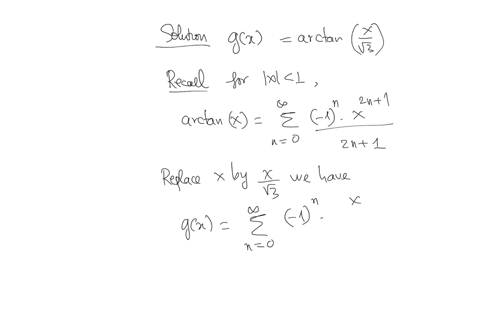 Solution g(x) = arctan (x/√3)
Recall for |x|<1,
arctan(x) = ∑_{n=0}^{∞} (-1)^n · x^{2n+1} / 2n+1
Replace x by x/√3 we have
g(x) = ∑_{n=0}^{∞} (-1)^n · x